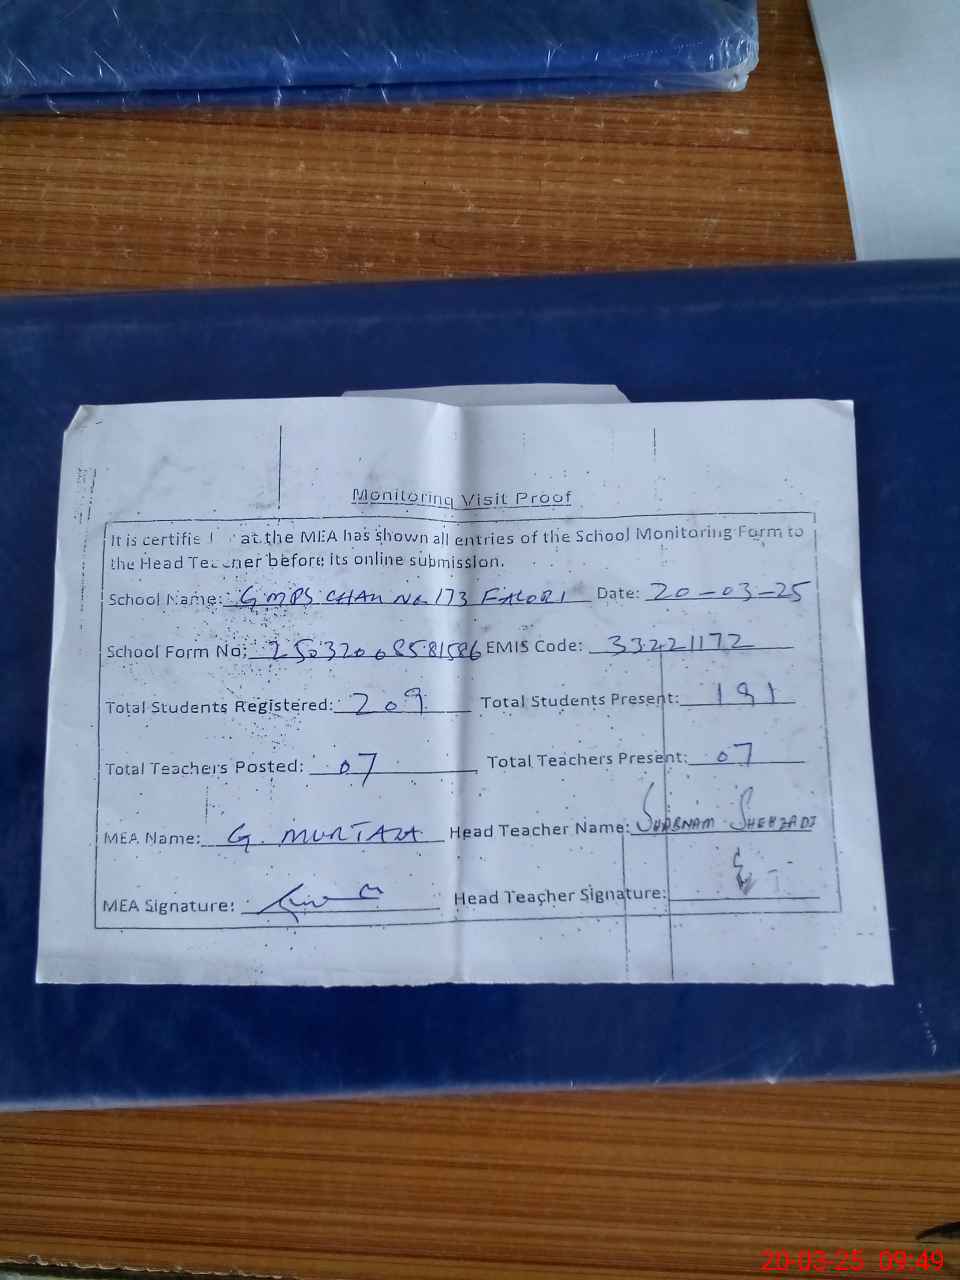 Monitoring Visit Proof
It is certifie at the MEA has shown all entries of the School Monitoring Form to
the Head Teacher before its online submission.
School Name: GMPS CHAK No. 173 Date: 20-03-25
School Form No: EMIS Code: 33221172
Total Students Registered: 209 Total Students Present: 191
Total Teachers Posted: 07 Total Teachers Present: 07
MEA Name: G. MURTAZA Head Teacher Name: SHABNAM SHEHZADI
MEA Signature: Head Teacher Signature:
20-03-25 09:49